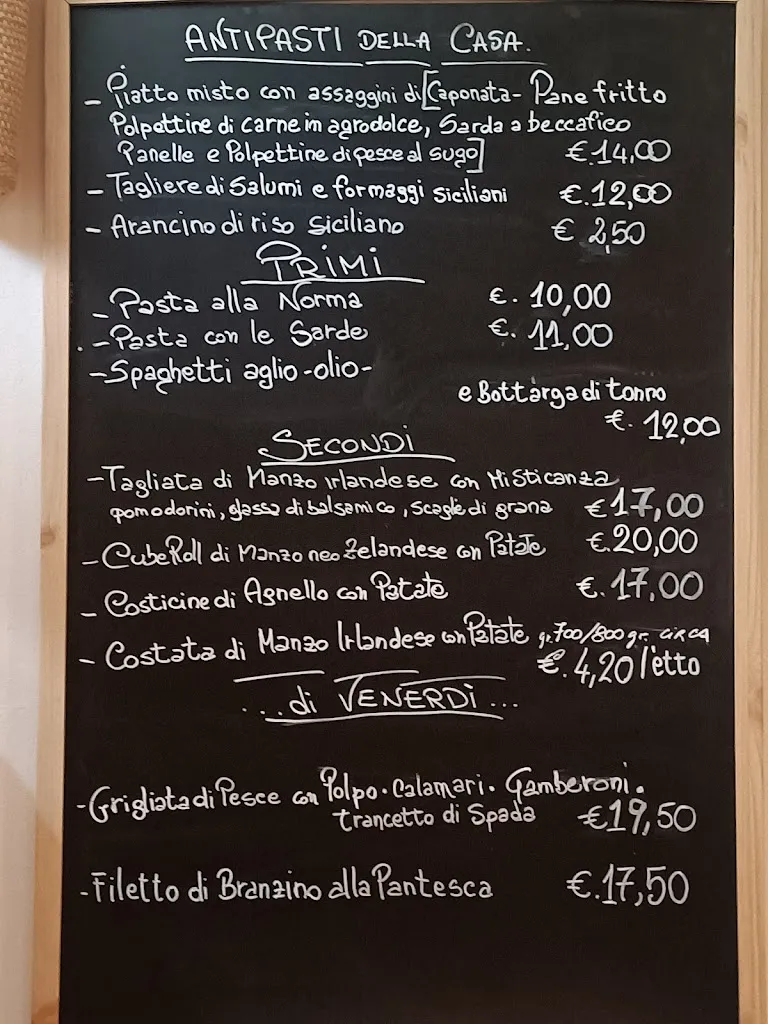 ANTIPASTI DELLA CASA.
- Piatto misto con assaggini di [Caponata - Pane fritto
Polpettine di carne in agrodolce, Sarda a beccafico
Panelle e Polpettine di pesce al sugo] €.14,00
- Tagliere di Salumi e formaggi siciliani €.12,00
- Arancino di riso siciliano € 2,50
PRIMI
- Pasta alla Norma €. 10,00
- Pasta con le Sarde €. 11,00
- Spaghetti aglio-olio-
e Bottarga di tonno
€. 12,00
SECONDI
- Tagliata di Manzo irlandese con Misticanza
pomodorini, glassa di balsamico, scaglie di grana €17,00
- CubeRoll di Manzo neoZelandese con Patate €.20,00
- Costicine di Agnello con Patate €.17,00
- Costata di Manzo Irlandese con Patate gr.700/800gr. circa
€.4,20 l'etto
...di VENERDì...
- Grigliata di Pesce con Polpo. Calamari. Gamberoni.
trancetto di Spada €19,50
- Filetto di Branzino alla Pantesca €.17,50